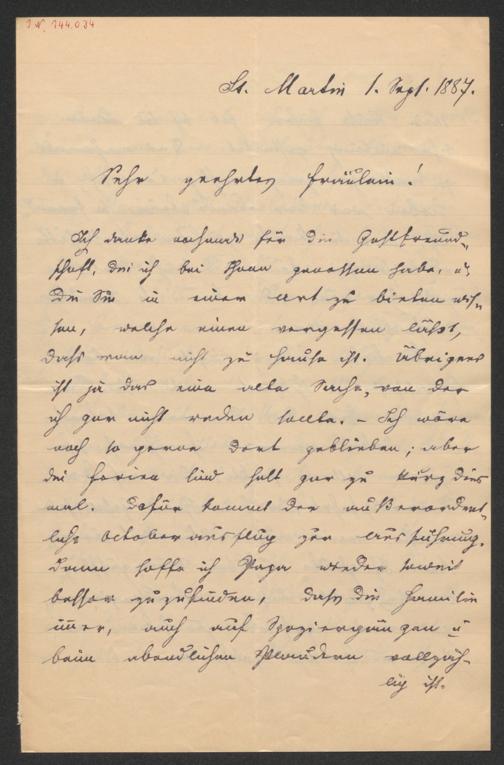 I. N. 144.034
St. Martin 1. Sept. 1887.
Sehr geehrtes Fräulein!
Ich danke nochmals für die Gastfreund-
schaft, die ich bei Ihnen genossen habe, u.
die Sie in einer Art zu bieten wis-
sen, welche einen vergessen läßt,
dass man nicht zu Hause ist. Übrigens
ist ja das eine alte Sache, von der
ich gar nicht reden sollte. – Ich wäre
noch so gerne dort geblieben; aber
die Ferien sind halt gar zu kurz dies-
mal. Dafür kommt der außerordent-
liche Octoberausflug zur Ausführung.
Dann hoffe ich Papa wieder soweit
besser zuzufinden, dass die Familie
immer, auch auf Spaziergängen u
beim abendlichen Plaudern vollzäh-
lig ist.